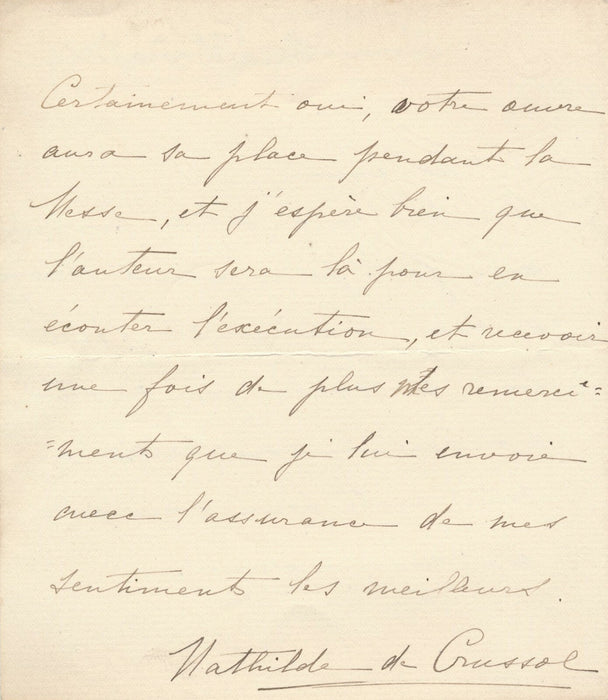 Certainement oui, votre œuvre
aura sa place pendant la
Messe, et j'espère bien que
l'auteur sera là pour en
écouter l'exécution, et recevoir
une fois de plus mes remerci=
=ments que je lui envoie
avec l'assurance de mes
sentiments les meilleurs.
Mathilde de Crussol